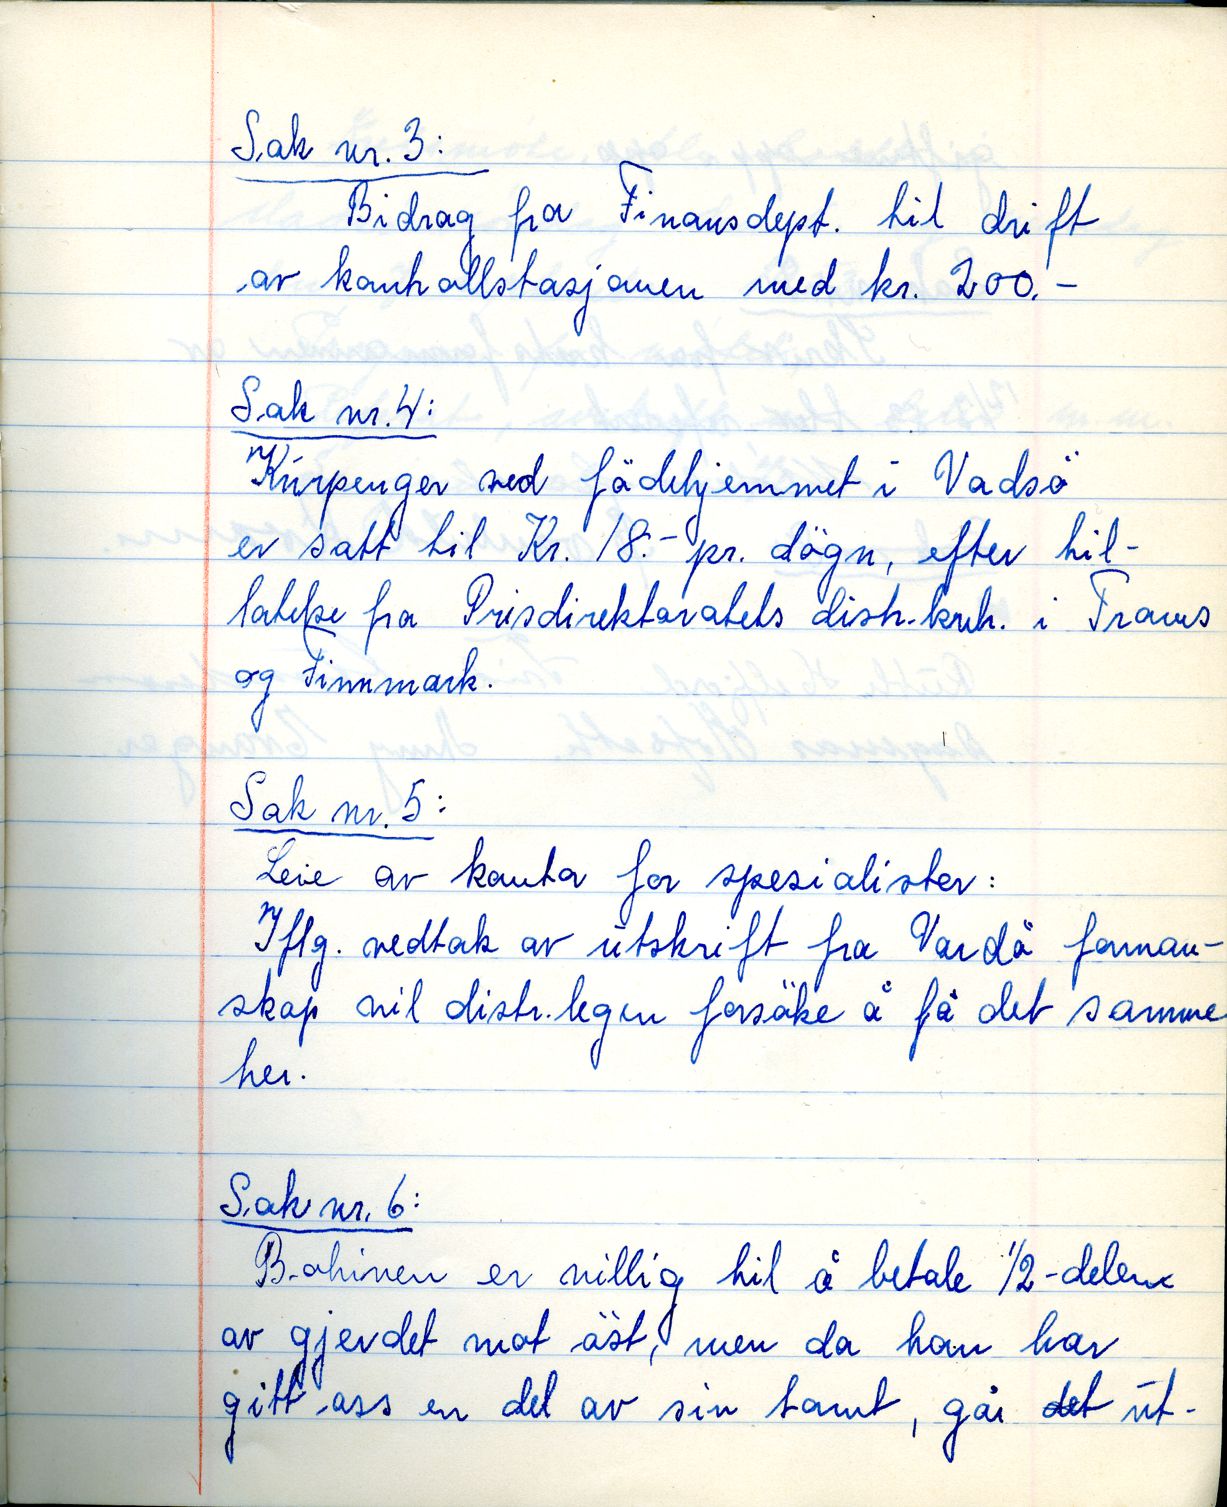 Sak nr. 3:
Bidrag fra Finansdept. til drift
av kontrollstasjonen med kr. 200.-
Sak nr. 4:
Kurpenger ved födehjemmet i Vadsö
er satt til Kr. 18.- pr. dögn, efter til-
latelse fra Prisdirektoratets distr.kntr. i Troms
og Finnmark.
Sak nr. 5:
Leie av kontor for spesialister:
Iflg. vedtak av utskrift fra Vardö forman-
skap vil distr.legen forsöke å få det samme
her.
Sak nr. 6:
Bohinen er villig til å betale 1/2-delen
av gjerdet mot öst, men da han har
gitt oss en del av sin tomt, går det ut-